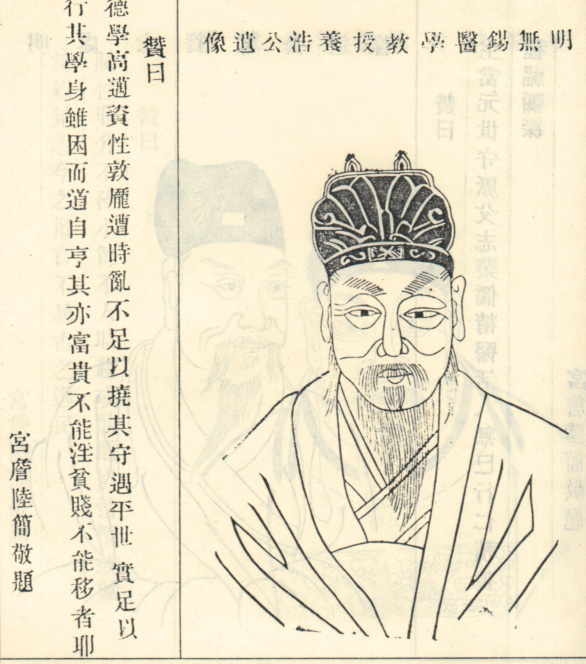 明無錫醫學教授義浩公遺像
贊曰
德學高邁資性敦龐遭時亂不足以撓其守遇平世實足以
行其學身雖困而道自亨其亦富貴不能淫貧賤不能移者耶
宮詹陸簡敬題